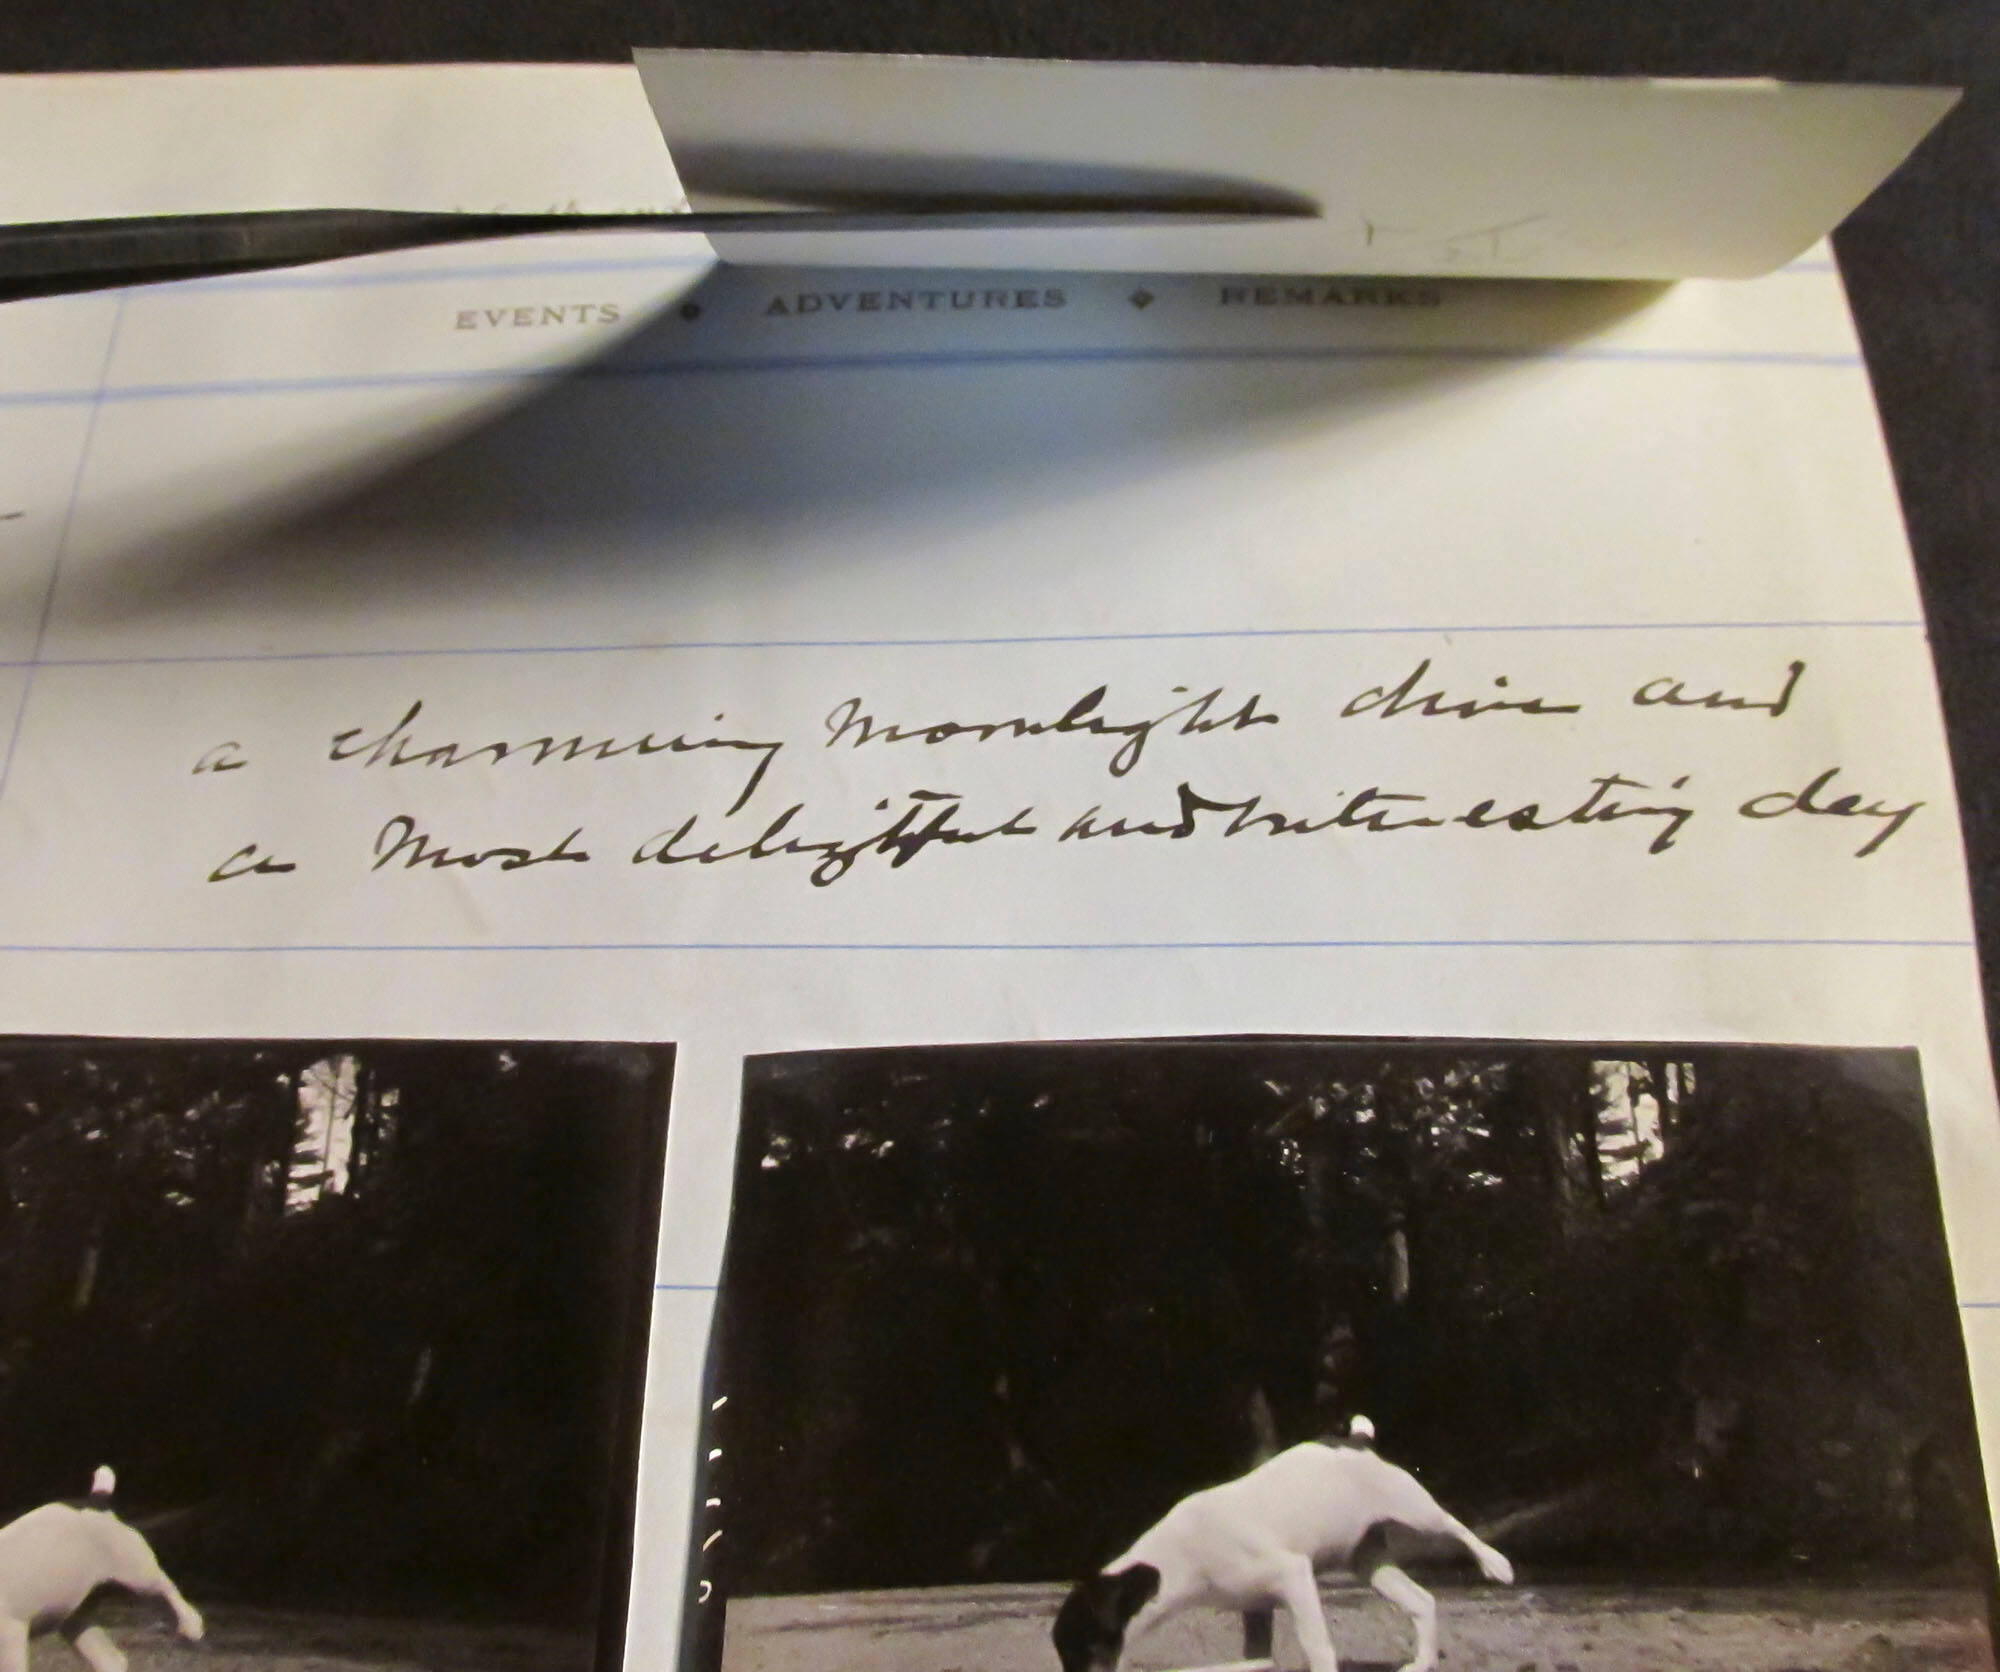 EVENTS ◆ ADVENTURES ◆ REMARKS
a charming moonlight drive and
a most delightful and interesting day